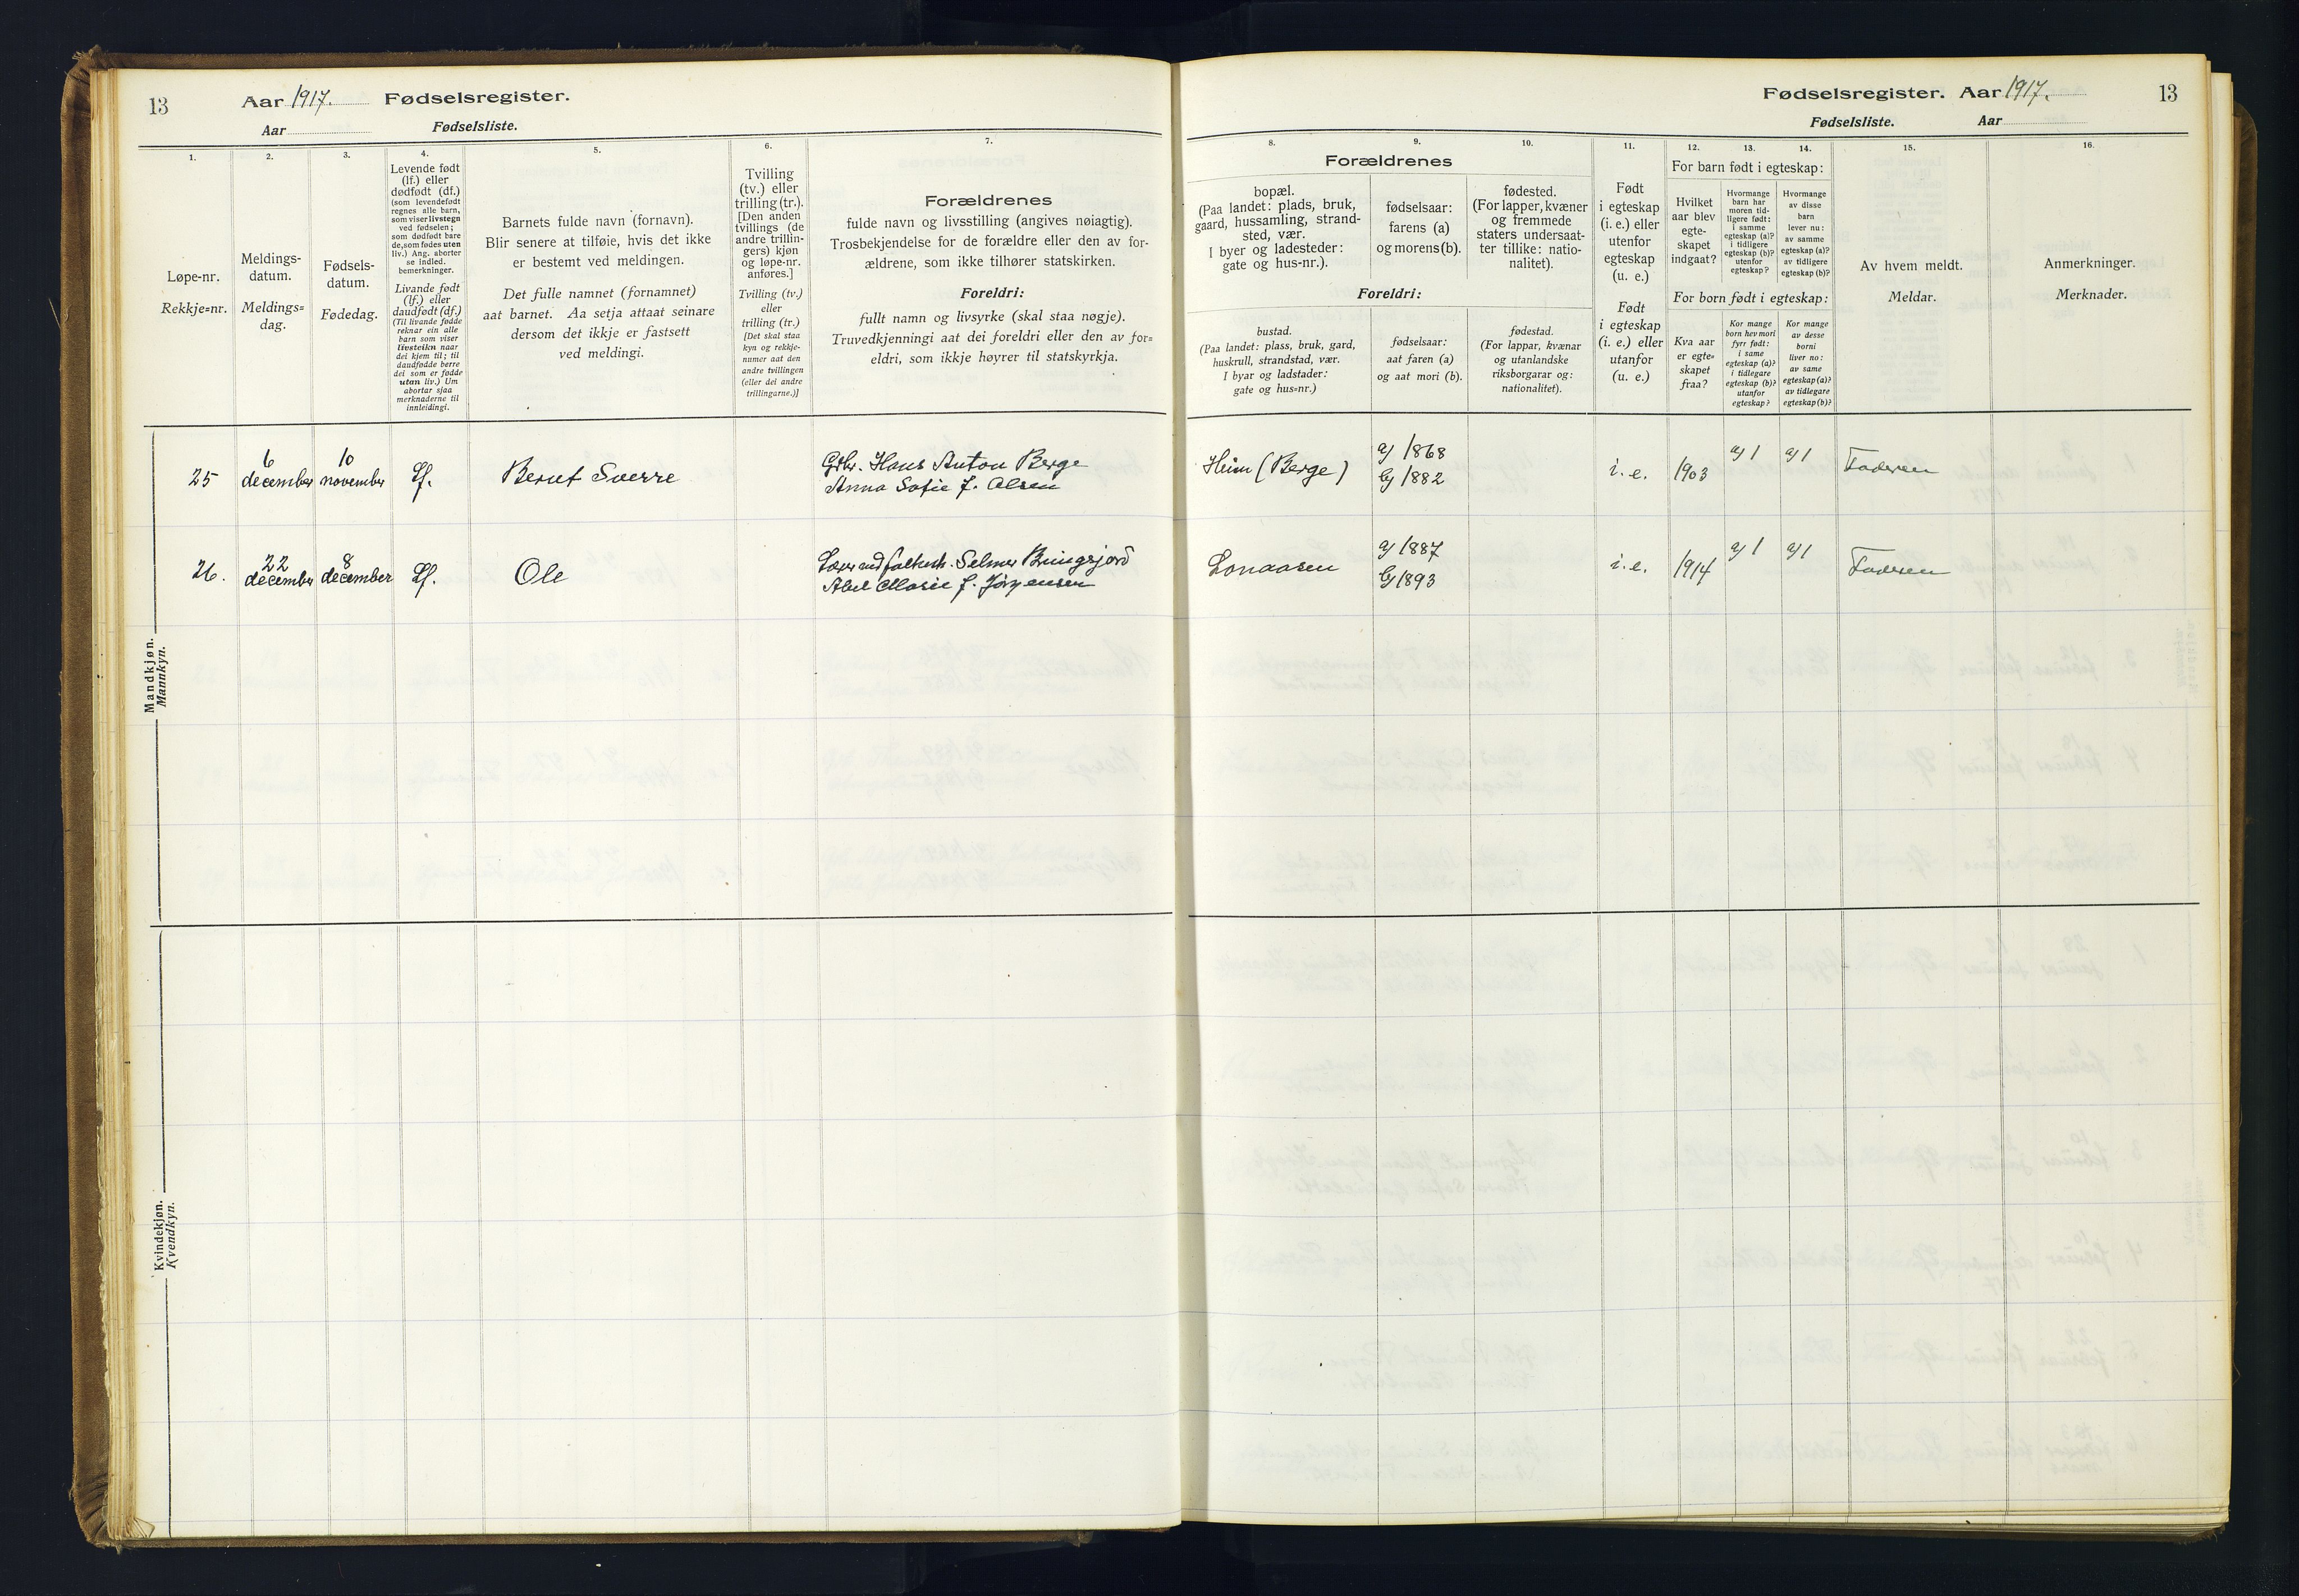 13
Aar 1917. Fødselsregister.
Aar Fødselsliste.
Fødselsregister. Aar 1917.
13
Fødselsliste. Aar
1.
Løpe-nr.
Rekkje=nr.
2.
Meldings-
datum.
Meldings=
dag.
3.
Fødsels-
datum.
Fødedag.
4.
Levende født
(lf.) eller
dødfødt (df.)
(som levendefødt
regnes alle barn,
som viser livstegn
ved fødselen;
som dødfødt bare
de, som fødes uten
liv.) Ang. aborter
se indled.
bemerkninger.
Livande født
(lf.) eller
daudfødt (df.)
(Til livande fødde
reknar ein alle
barn som viser
livsteikn naar
dei kjem til; til
daudfødde berre
dei som er fødde
utan liv.) Um
abortar sjaa
merknaderne til
innleidingi.
5.
Barnets fulde navn (fornavn).
Blir senere at tilføie, hvis det ikke
er bestemt ved meldingen.
Det fulle namnet (fornamnet)
aat barnet. Aa setja attaat seinare
dersom det ikkje er fastsett
ved meldingi.
6.
Tvilling
(tv.) eller
trilling (tr.).
[Den anden
tvillings (de
andre trillin-
gers) kjøn
og løpe-nr.
anføres.]
Tvilling (tv.)
eller
trilling (tr.)
[Det skal staa
kyn og rekkje-
numer aat den
andre tvillingen
(eller dei andre
trillingarne.)]
7.
Forældrenes
fulde navn og livsstilling (angives nøiagtig).
Trosbekjendelse for de forældre eller den av for-
ældrene, som ikke tilhører statskirken.
Foreldri:
fullt namn og livsyrke (skal staa nøgje).
Truvedkjenningi aat dei foreldri eller den av for=
eldri, som ikkje høyrer til statskyrkja.
Forældrenes
8.
bopæl.
(Paa landet: plads, bruk,
gaard, hussamling, strand-
sted, vær.
I byer og ladesteder:
gate og hus-nr.).
9.
fødselsaar:
farens (a)
og morens (b).
10.
fødested.
(For lapper, kvæner
og fremmede
staters undersaat-
ter tillike: natio-
nalitet).
Foreldri:
bustad.
(Paa landet: plass, bruk, gard,
huskrull, strandstad, vær.
I byar og ladstader:
gate og hus=nr.)
fødselsaar:
aat faren (a)
og aat mori (b).
fødestad.
(For lappar, kvænar
og utanlandske
riksborgarar og:
nationalitet).
11.
Født
i egteskap
(i. e.) eller
utenfor
egteskap
(u. e.)
Født
i egteskap
(i. e.) eller
utanfor
(u. e.)
12. 13. 14.
For barn født i egteskap:
Hvilket
aar blev
egte-
skapet
indgaat?
Hvormange
barn har
moren tid-
ligere født:
i samme
egteskap (a)?
i tidligere
egteskap (b)?
utenfor
egteskap?
Hvormange
av disse
barn
lever nu:
av samme
egteskap (a)?
av tidligere
egteskap (b)?
For born født i egteskap:
Kva aar
er egte=
skapet
fraa?
Kor mange
born hev mori
fyrr født:
i same
egteskap (a)?
i tidlegare
egteskap (b)?
utanfor
egteskap?
Kor mange
av desse
borni
liver no:
av same
egteskap (a)?
av tidlegare
egteskap (b)?
15.
Av hvem meldt.
Meldar.
16.
Anmerkninger.
Merknader.
Mandkjøn.
Mannkyn.
25
6
december
10
november
Lf.
Bernt Sverre
Grbr. Hans Anton Berge
Anna Sofie f. Olsen
Heim (Berge)
a) 1868
b) 1882
i. e.
1903
a) 1
a) 1
Faderen
26.
22
december
8
december
Lf.
Ole
Selmer Bringsjord
Abel Marie f. Jørgensen
Lonaasen
a) 1887
b) 1893
i. e.
1914
a) 1
a) 1
Faderen
Kvindekjøn.
Kvendkyn.